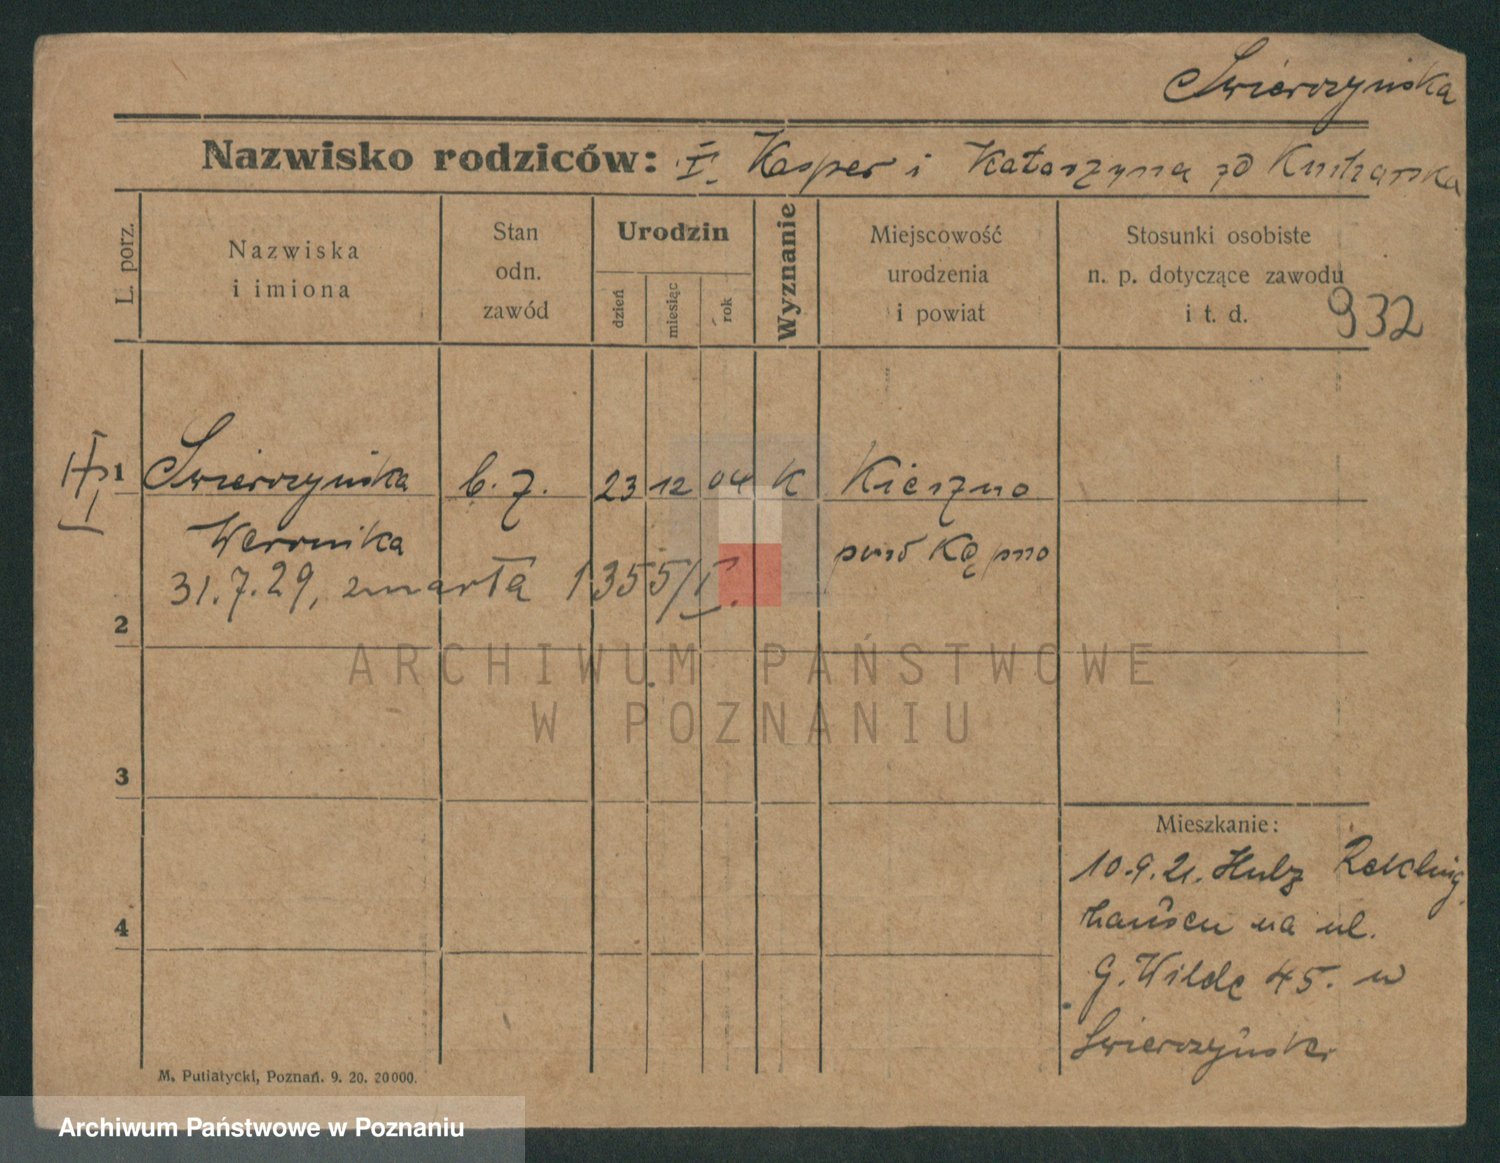 Swierczyńska
Nazwisko rodziców: I. Kasper i Katarzyna zd Kucharska
L. porz.
Nazwiska
i imiona
Stan
odn.
zawód
Urodzin
dzień
miesiąc
rok
Wyznanie
Miejscowość
urodzenia
i powiat
Stosunki osobiste
n. p. dotyczące zawodu
i t. d.
932
1 Swierczyńska b. z. 23 12 04 K Kierzno
Weronika pow Kępno
31.7.29, zmarła 1355/I.
2
3
4
Mieszkanie:
10.9.21. Hulz Rekling
hausen na ul.
G. Wilde 45. u
Swierczyński
M. Putiatycki, Poznań. 9. 20. 20000.
ARCHIWUM PAŃSTWOWE
W POZNANIU
Archiwum Państwowe w Poznaniu